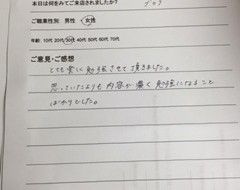 本日は何をみてご来店されましたか？
ご職業性別: 男性・女性
年齢: 10代 20代 30代 40代 50代 60代 70代
ご意見・ご感想
とても楽に勉強させて頂きました。
思っていたよりも内容が濃く勉強になること
ばかりでした。